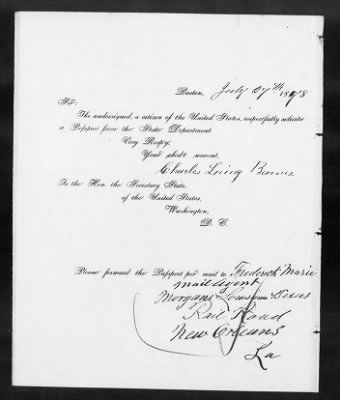 Boston, July 27th 1878
Sir:
The undersigned, a citizen of the United States, respectfully solicits
a Passport from the State Department.
Very Resp'y,
Your obd't servant,
Charles Loring
To the Hon. the Secretary State,
of the United States,
Washington,
D. C.
Please forward the Passport per mail to Frederick Marie
mail agent
Morgans Louisiana & Texas
Rail Road
New Orleans
La